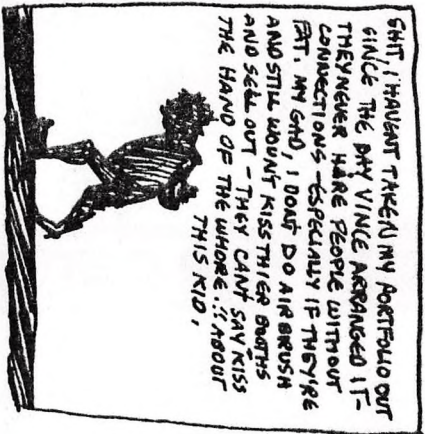 SHIT, I HAVENT TAKEN MY PORTFOLIO OUT
SINCE THE DAY VINCE ARRANGED IT-
THEY NEVER HARE PEOPLE WITHOUT
CONNECTIONS - ESPECIALLY IF THEY'RE
FAT. MY GAD, I DONT DO AIR BRUSH
AND STILL WOUNT KISS THIER BOOTHS
AND SELL OUT - THEY CANT SAY KISS
THE HAND OF THE WHORE.!! ABOUT
THIS KID,